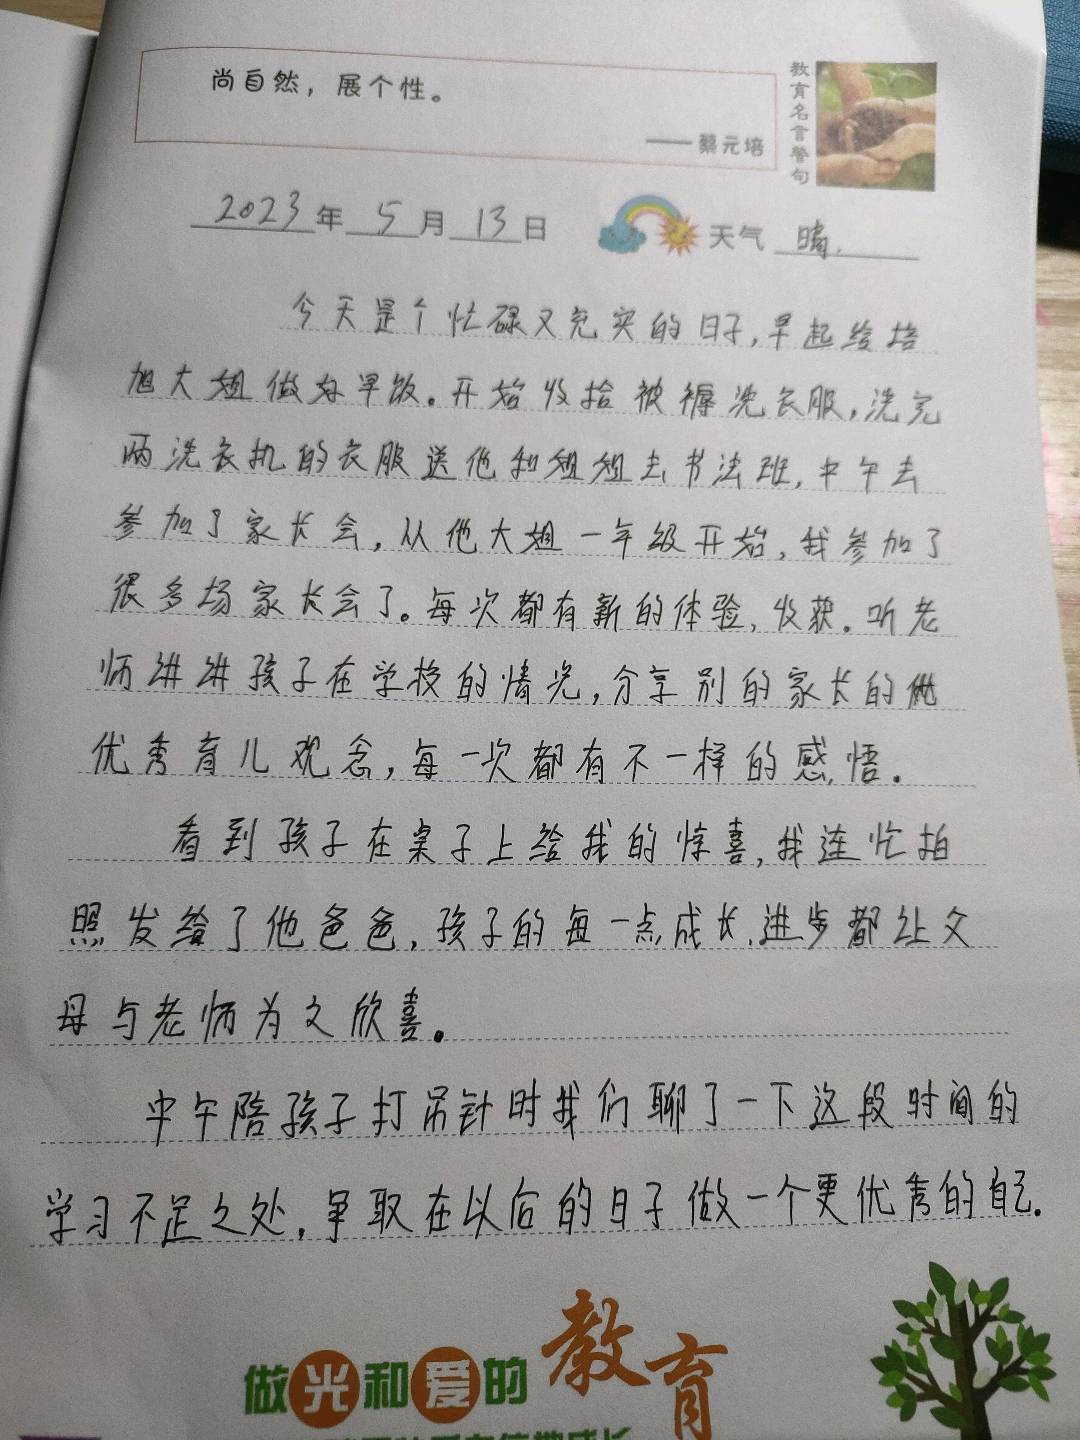 尚自然，展个性。
——蔡元培
教育名言警句
2023年5月13日 天气 晴.
今天是个忙碌又充实的日子,早起给培
旭大姐做好早饭。开始收拾被褥洗衣服,洗完
两洗衣机的衣服送他和姐姐去书法班,中午去
参加了家长会,从他大姐一年级开始,我参加了
很多场家长会了。每次都有新的体验,收获。听老
师讲讲孩子在学校的情况,分享别的家长的
优秀育儿观念,每一次都有不一样的感悟.
看到孩子在桌子上给我的惊喜,我连忙拍
照发给了他爸爸,孩子的每一点成长.进步都让父
母与老师为之欣喜。
中午陪孩子打吊针时我们聊了一下这段时间的
学习不足之处,争取在以后的日子做一个更优秀的自己.
做光和爱的教育